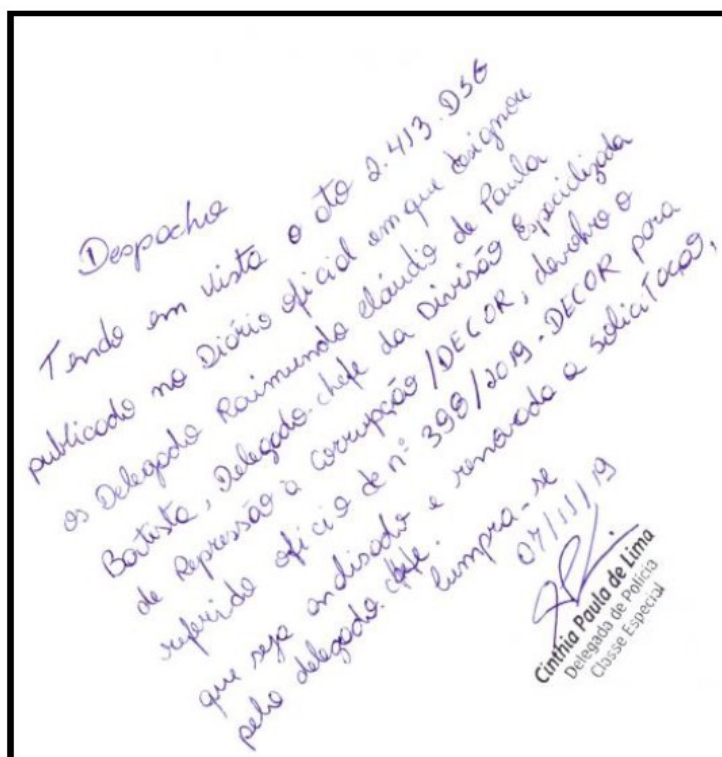 Despacho
Tendo em vista o ato 2.413.DSG
publicado no Diário oficial em que designou
os Delegado Raimundo Cláudio de Paula
Batista, Delegado-chefe da Divisão Especializada
de Repressão à corrupção/DECOR, devolvo o
referido ofício de nº 398/2019-DECOR para
que seja analisado e renovada a solicitação,
pelo delegado-chefe. Cumpra-se
07/11/19
Cinthia Paula de Lima
Delegada de Polícia
Classe Especial